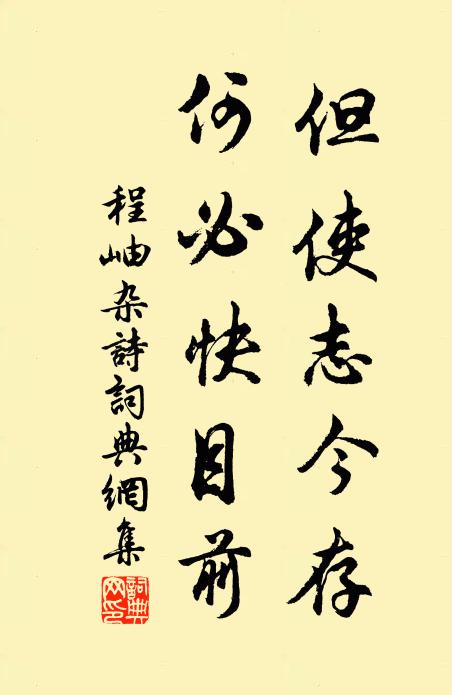 但使志今存
何必快目前
程岫杂詩詞典網集
詞典網印